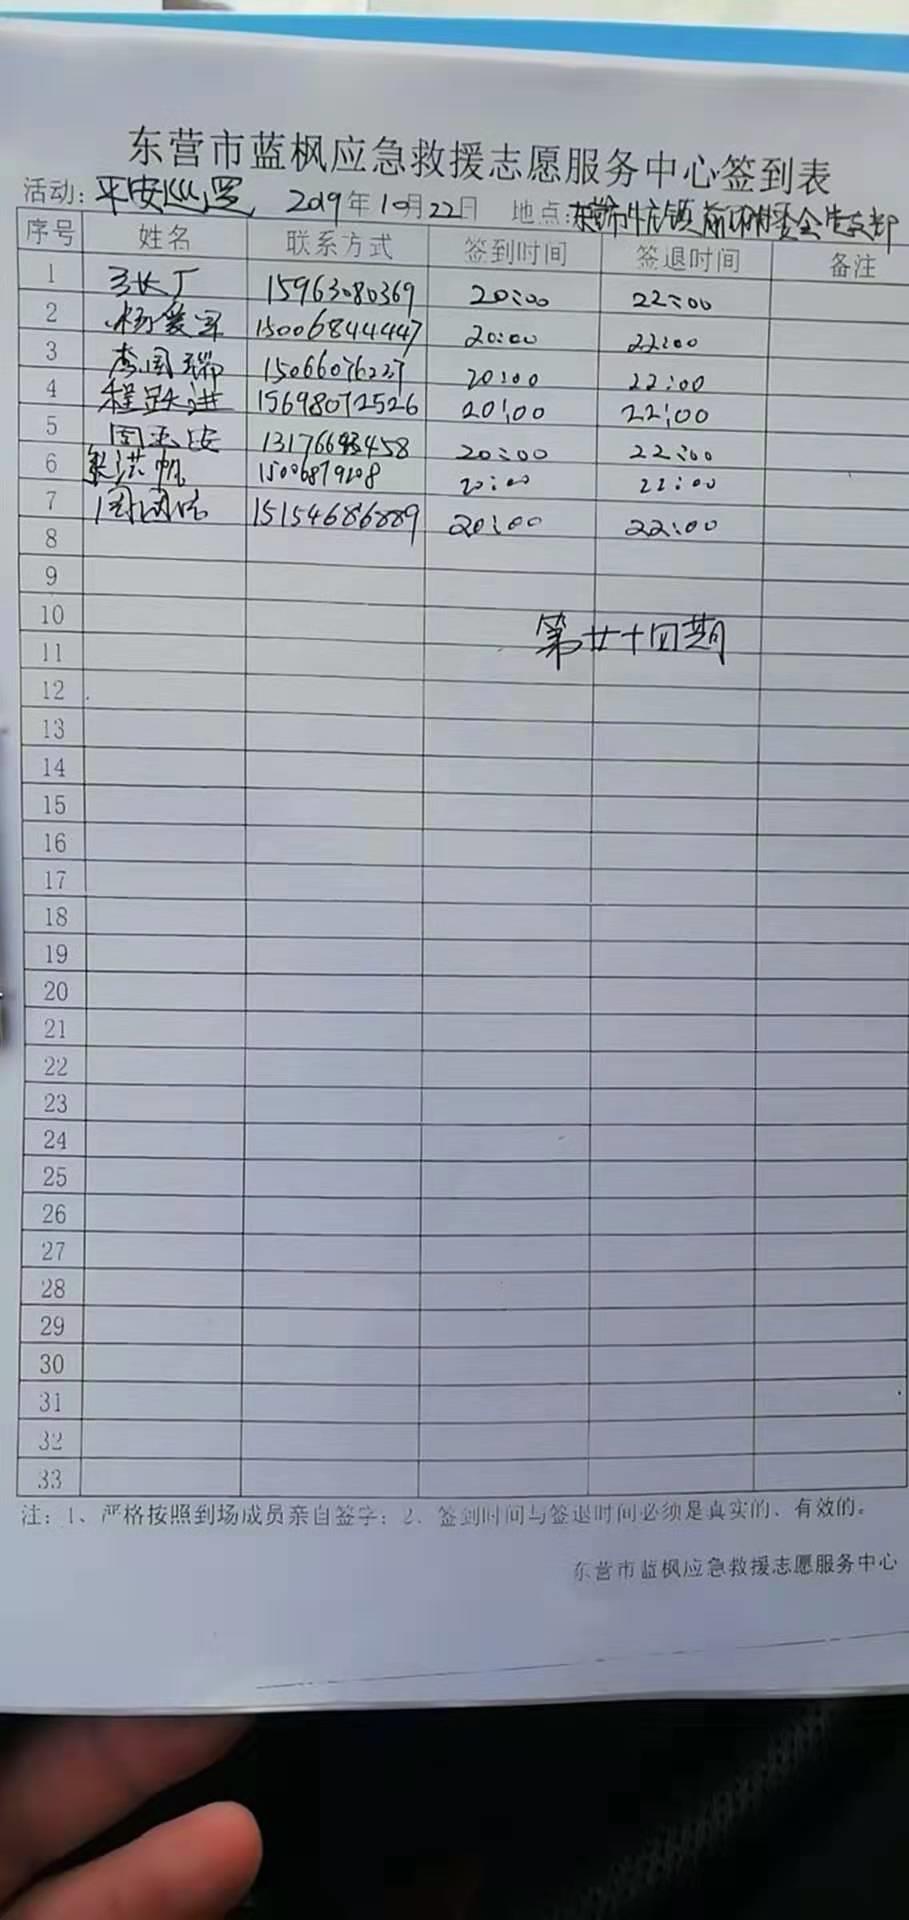 东营市蓝枫应急救援志愿服务中心签到表
活动：平安巡逻 2019年10月22日 地点：东营市牛庄镇
序号 姓名 联系方式 签到时间 签退时间 备注
1 15963080369 20:00 22:00
2 杨爱军 15006844447 20:00 22:00
3 李国瑞 15066076227 20:00 22:00
4 程跃进 15698072526 20:00 22:00
5 周玉安 20:00 22:00
6 洪帆 20:00 22:00
7 周 15154686889 20:00 22:00
8
9
10
第廿十四期
11
12
13
14
15
16
17
18
19
20
21
22
23
24
25
26
27
28
29
30
31
32
33
注：1、严格按照到场成员亲自签字；2、签到时间与签退时间必须是真实的、有效的。
东营市蓝枫应急救援志愿服务中心